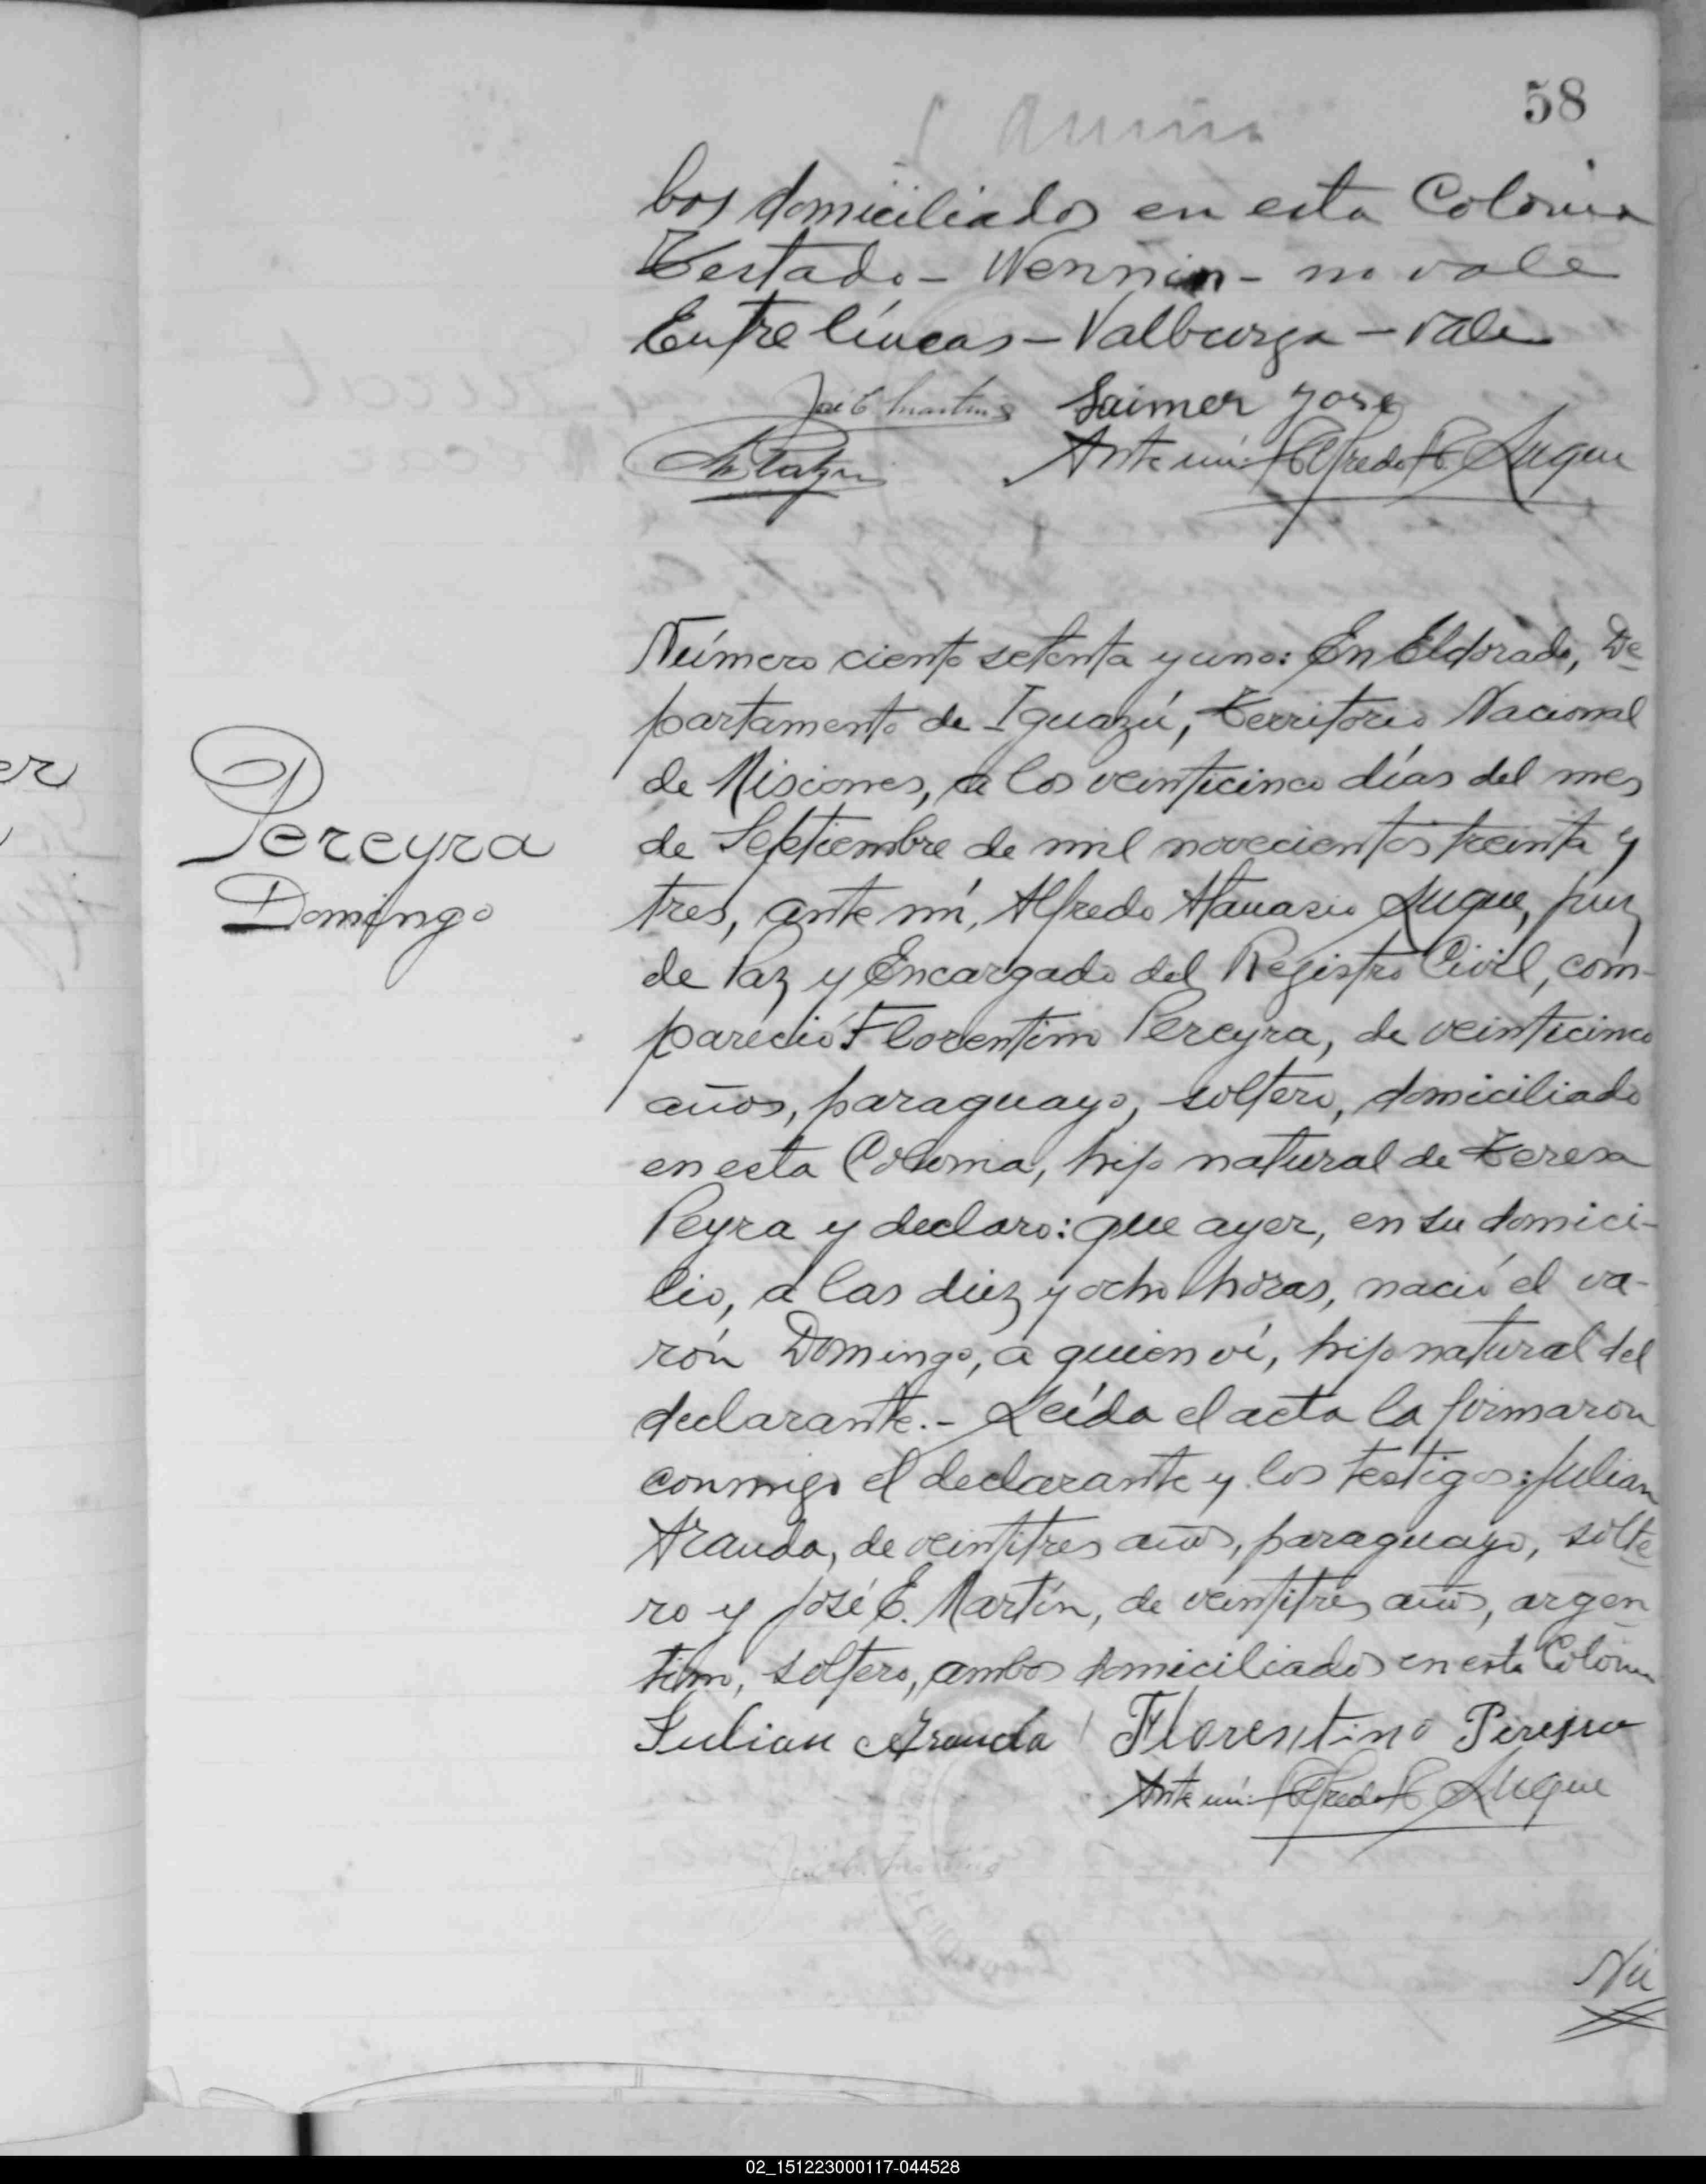 58
bos domiciliados en esta Colonia
Testado - Wennin - no vale
Entre líneas - Valburga - vale
José E. Martins Saimer José
Ante mí: Alfredo A. Luque
Número ciento setenta y uno: En Eldorado, De
partamento de Iguazú, Territorio Nacional
de Misiones, a los veinticinco días del mes
de Septiembre de mil novecientos treinta y
tres, ante mí, Alfredo Atanasio Luque, Juez
de Paz y Encargado del Registro Civil, com-
pareció Florentino Pereyra, de veinticinco
años, paraguayo, soltero, domiciliado
en esta Colonia, hijo natural de Teresa
Peyra y declaro: que ayer, en su domici-
lio, a las diez y ocho horas, nació el va-
rón Domingo, a quien ví, hijo natural del
declarante.- Leída el acta la firmaron
conmigo el declarante y los testigos: Julian
Aranda, de veintitres años, paraguayo, solte
ro y José E. Martín, de veintitres años, argen
tino, soltero, ambos domiciliados en esta Colonia
Julian Aranda Florentino Pereyra
Ante mí: Alfredo A. Luque
José E. Martins
Nú
Pereyra
Domingo
er
02_151223000117-044528